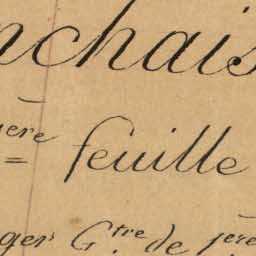 nchais
ère feuille
ger G.tre de 1ère